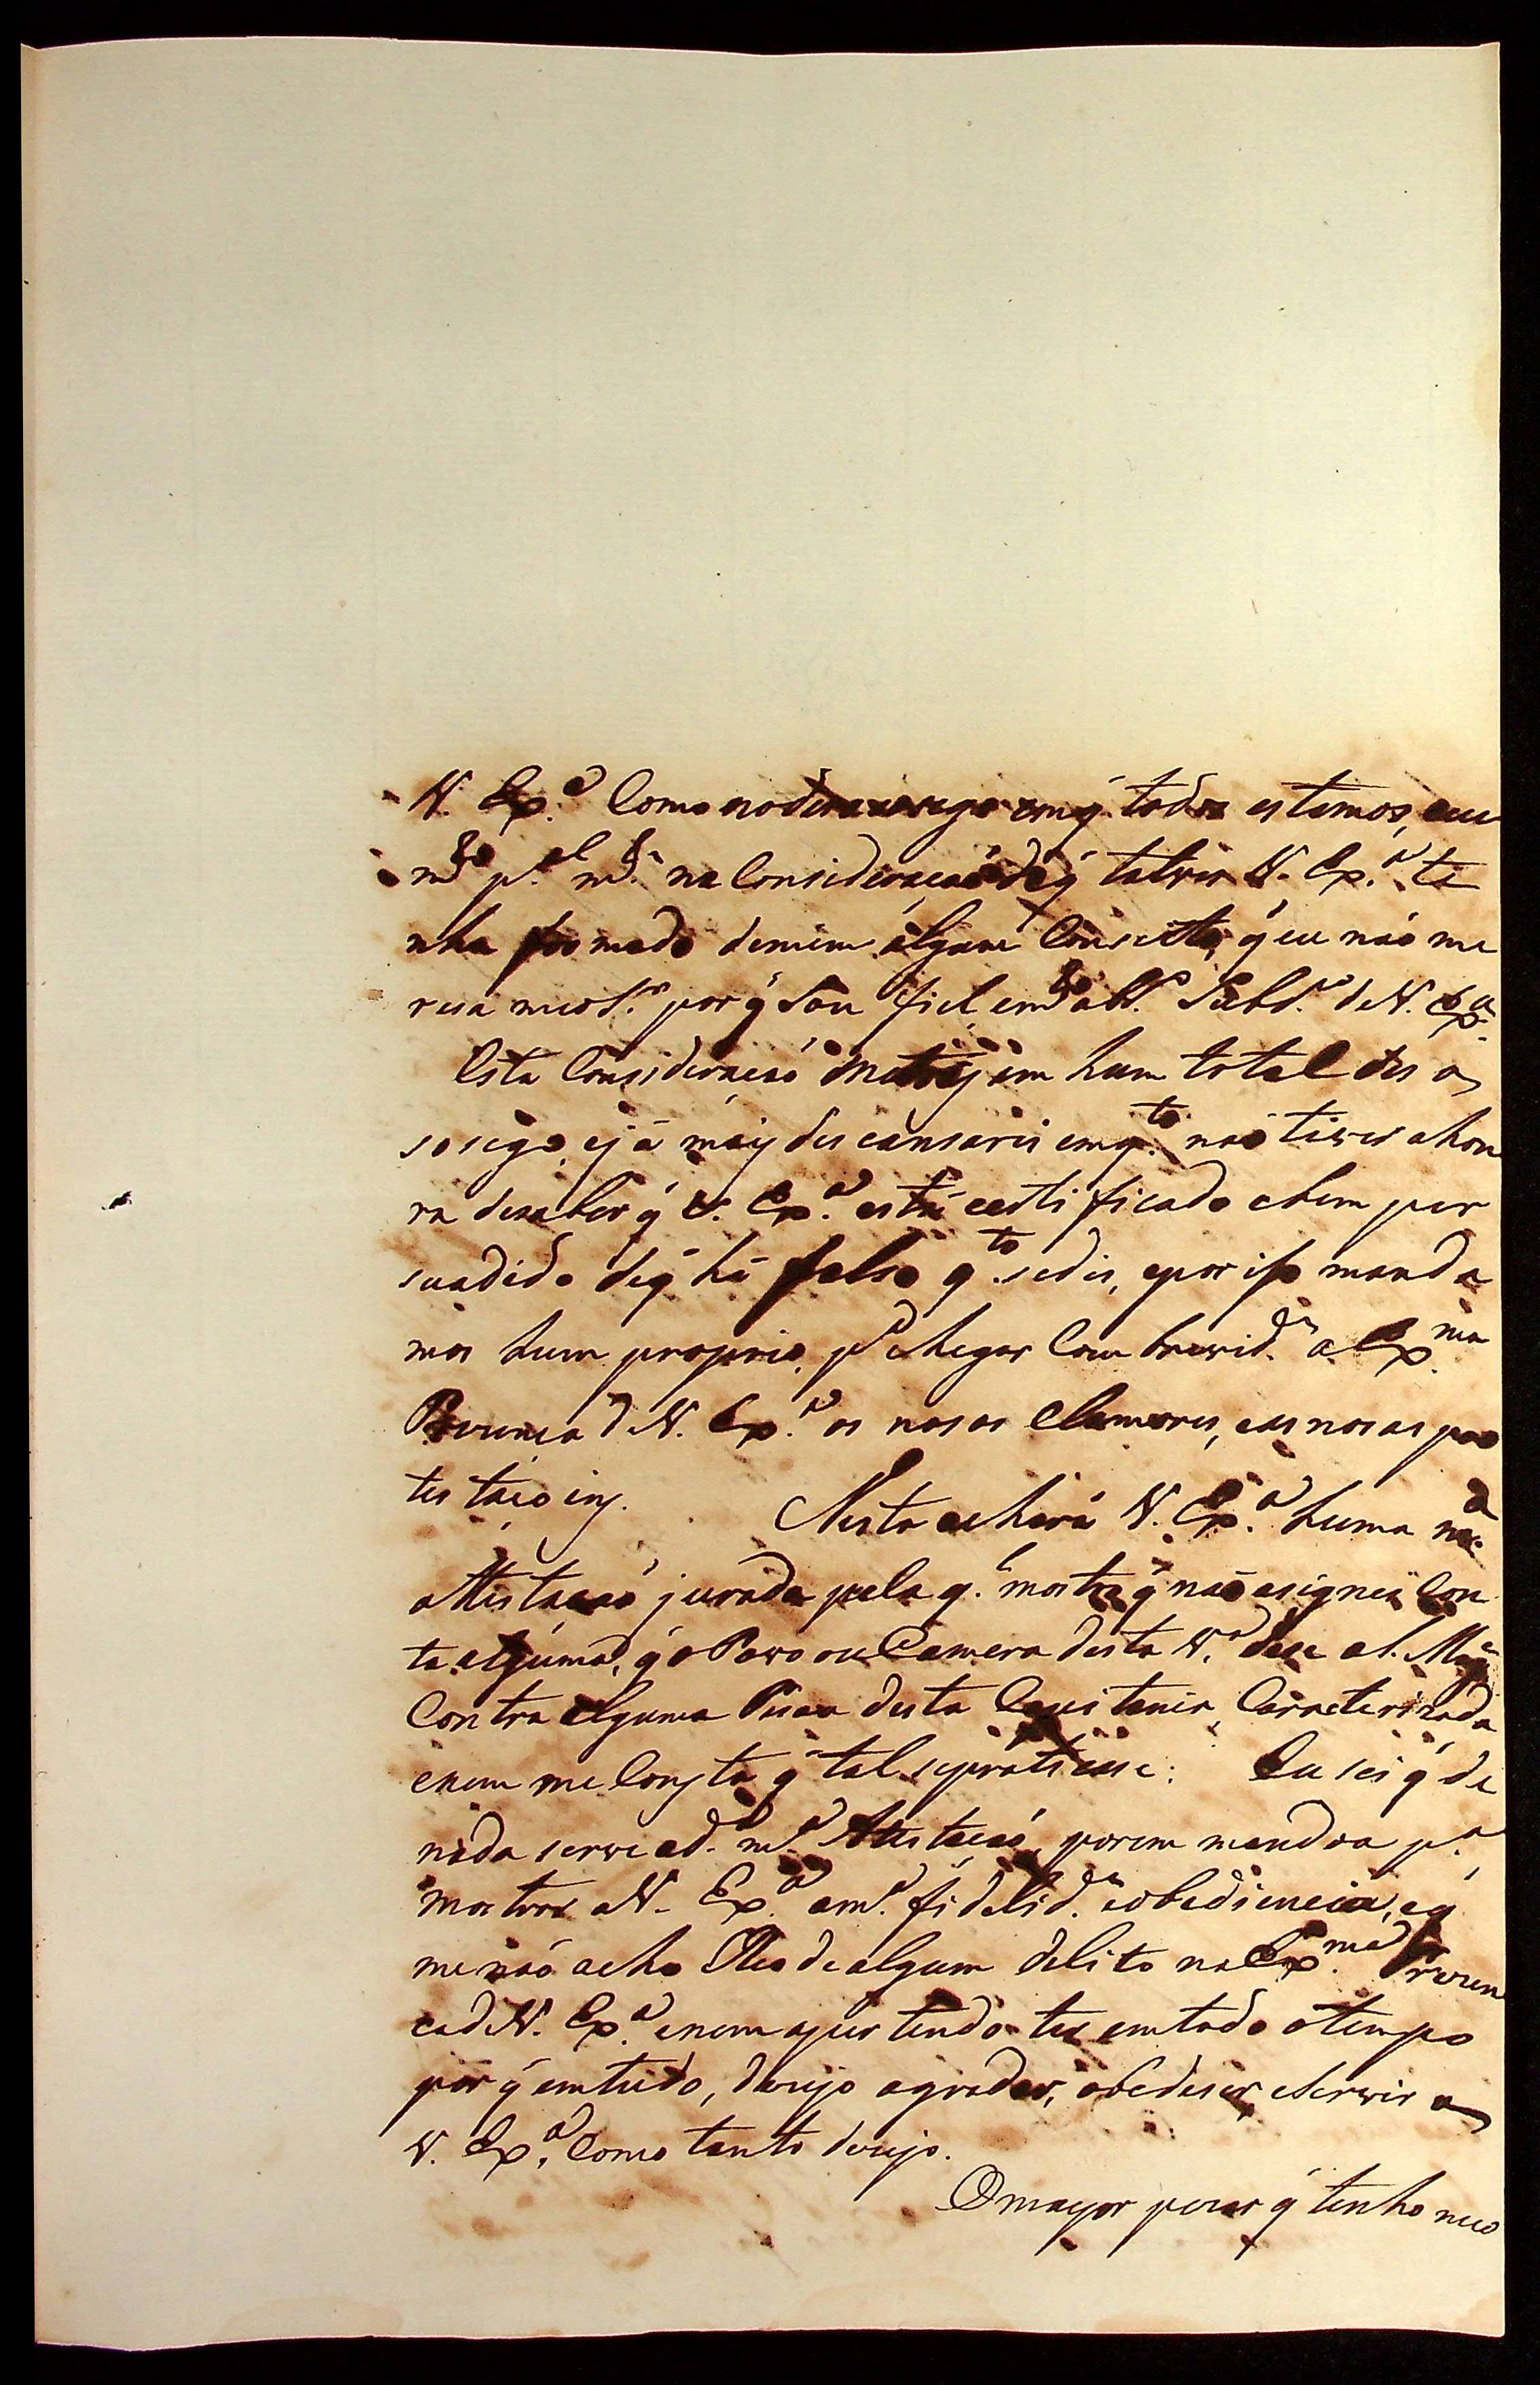 V. Ex.ª Como no desasosego em q̃ todos estamos, eu
m.to p.al m.te na Consideracaó de q̃ talves V. Ex.ª te
nha formado demim algum Conseito, q̃ eu naó me
resa meo S.r por q̃ Sou fiel, em.to obd.e Subd.o de V. Ex.ª
Esta Consideracaó me tras em hum total des a
sosego, ejá mais descansarei emq.to naó tiver ahon
ra desaber q̃ V. Ex.ª está certificado ebem per
suadido deq̃ hé falso q.to sedis, epor iso manda
mos hum proprio, p.ª chegar Com brevid.e a Ex.ma
Prezenca d V. Ex.ª os nosos Clamores, eas nosas pro
testacoins.   Nesta achará V. Ex.ª huma m.ª
attestacaó jurada pela q.l mostro q̃ naó asignei Con
ta alguma, q̃ o Povo ou Camera desta V.ª dese a S. Mag.e
Contra alguma Pesoa desta Capitania Caracterizada
enem me Consta q̃ tal sepraticase: Eu sei q̃ de
nada serve ad.ª m.ª Attestacaó, porem mandoa p.ª
mostrar aV. Ex.ª am.ª fidelid.e eobediencia, eq̃
menaó acho Reo de algum delito na Ex.ma Prezen
ca d V. Ex.ª enem pertendo ter emtodo otempo
por q̃ emtudo, dezejo agradar, obedeser, eServir a
V. Ex.ª Como tanto dezejo.
O mayor pezar q̃ tenho meo